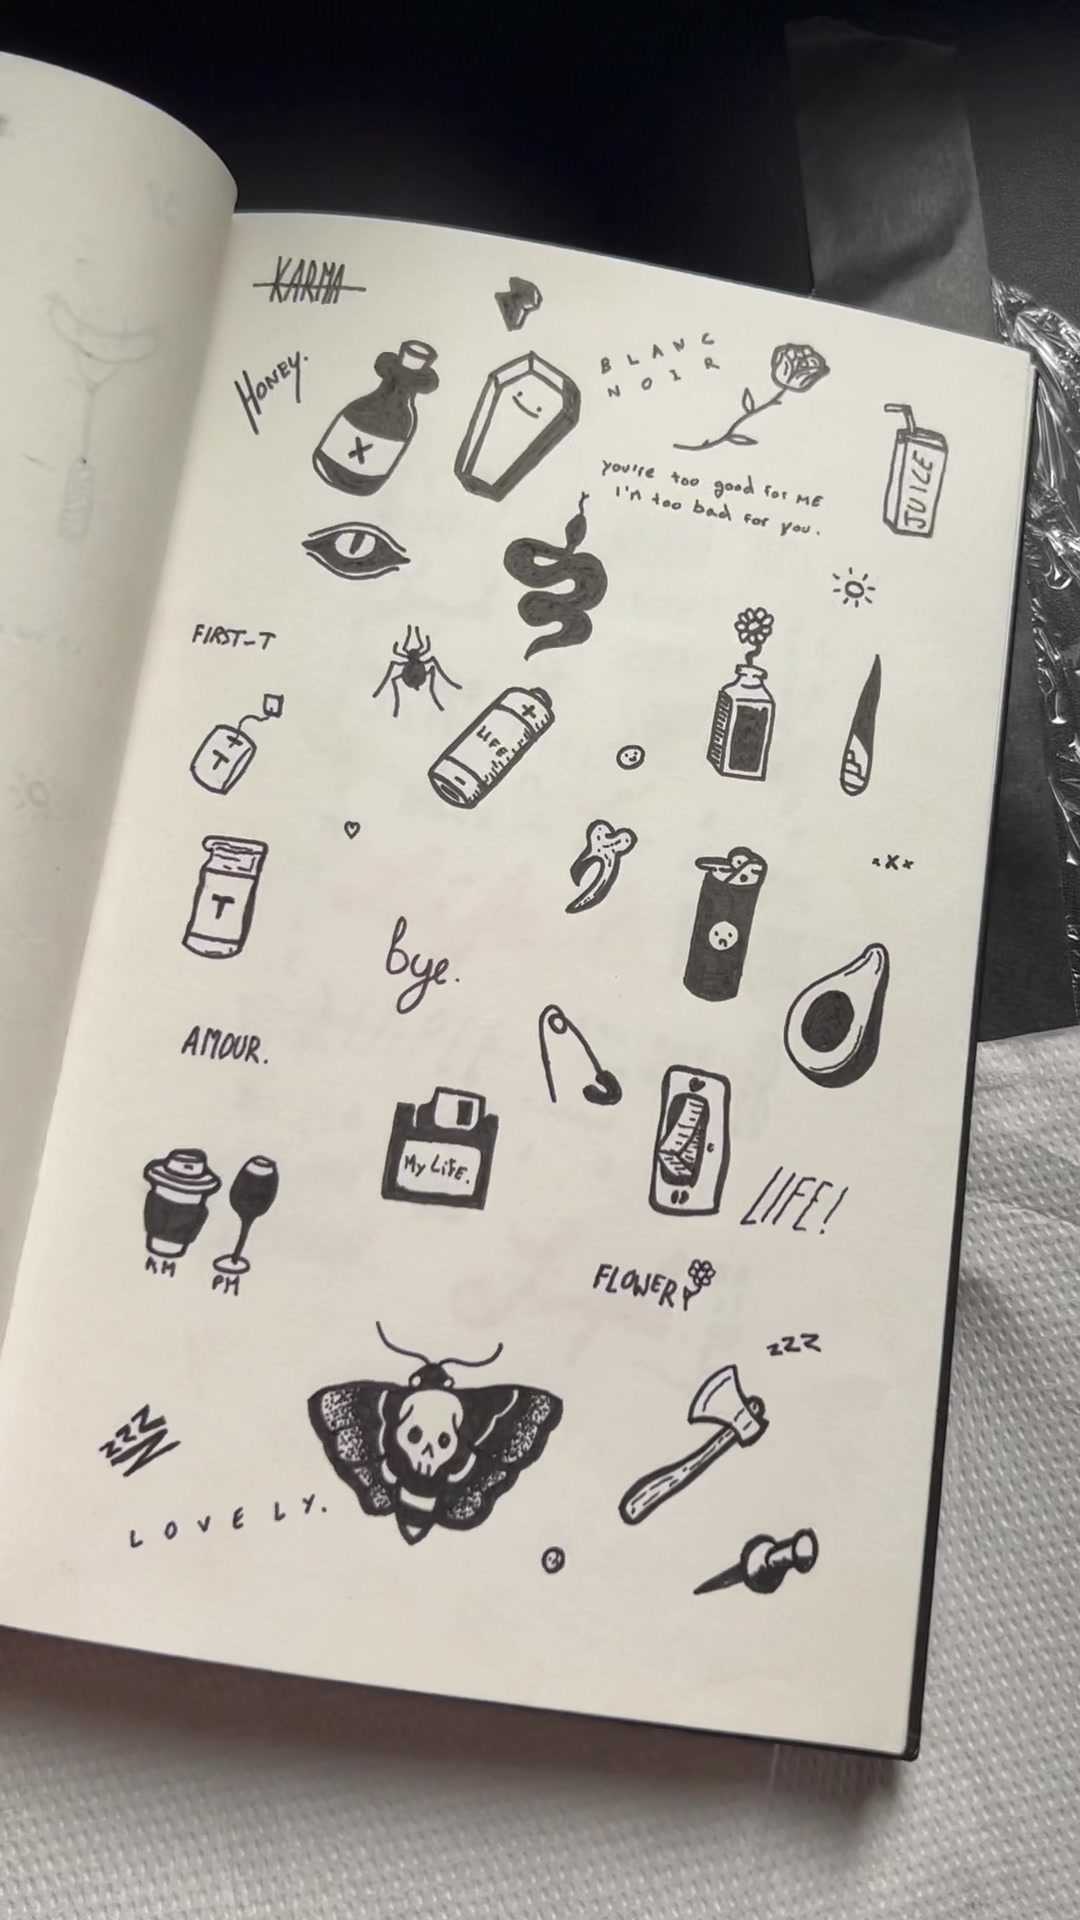 KARMA
HONEY.
BLANC
NOIR
X
JUICE
you're too good for ME
I'm too bad for you.
FIRST-T
LIFE
T
T
xXx
bye.
AMOUR.
My LiFE.
LIFE!
AM
PM
FLOWERY
zzz
zzz
LOVELY.